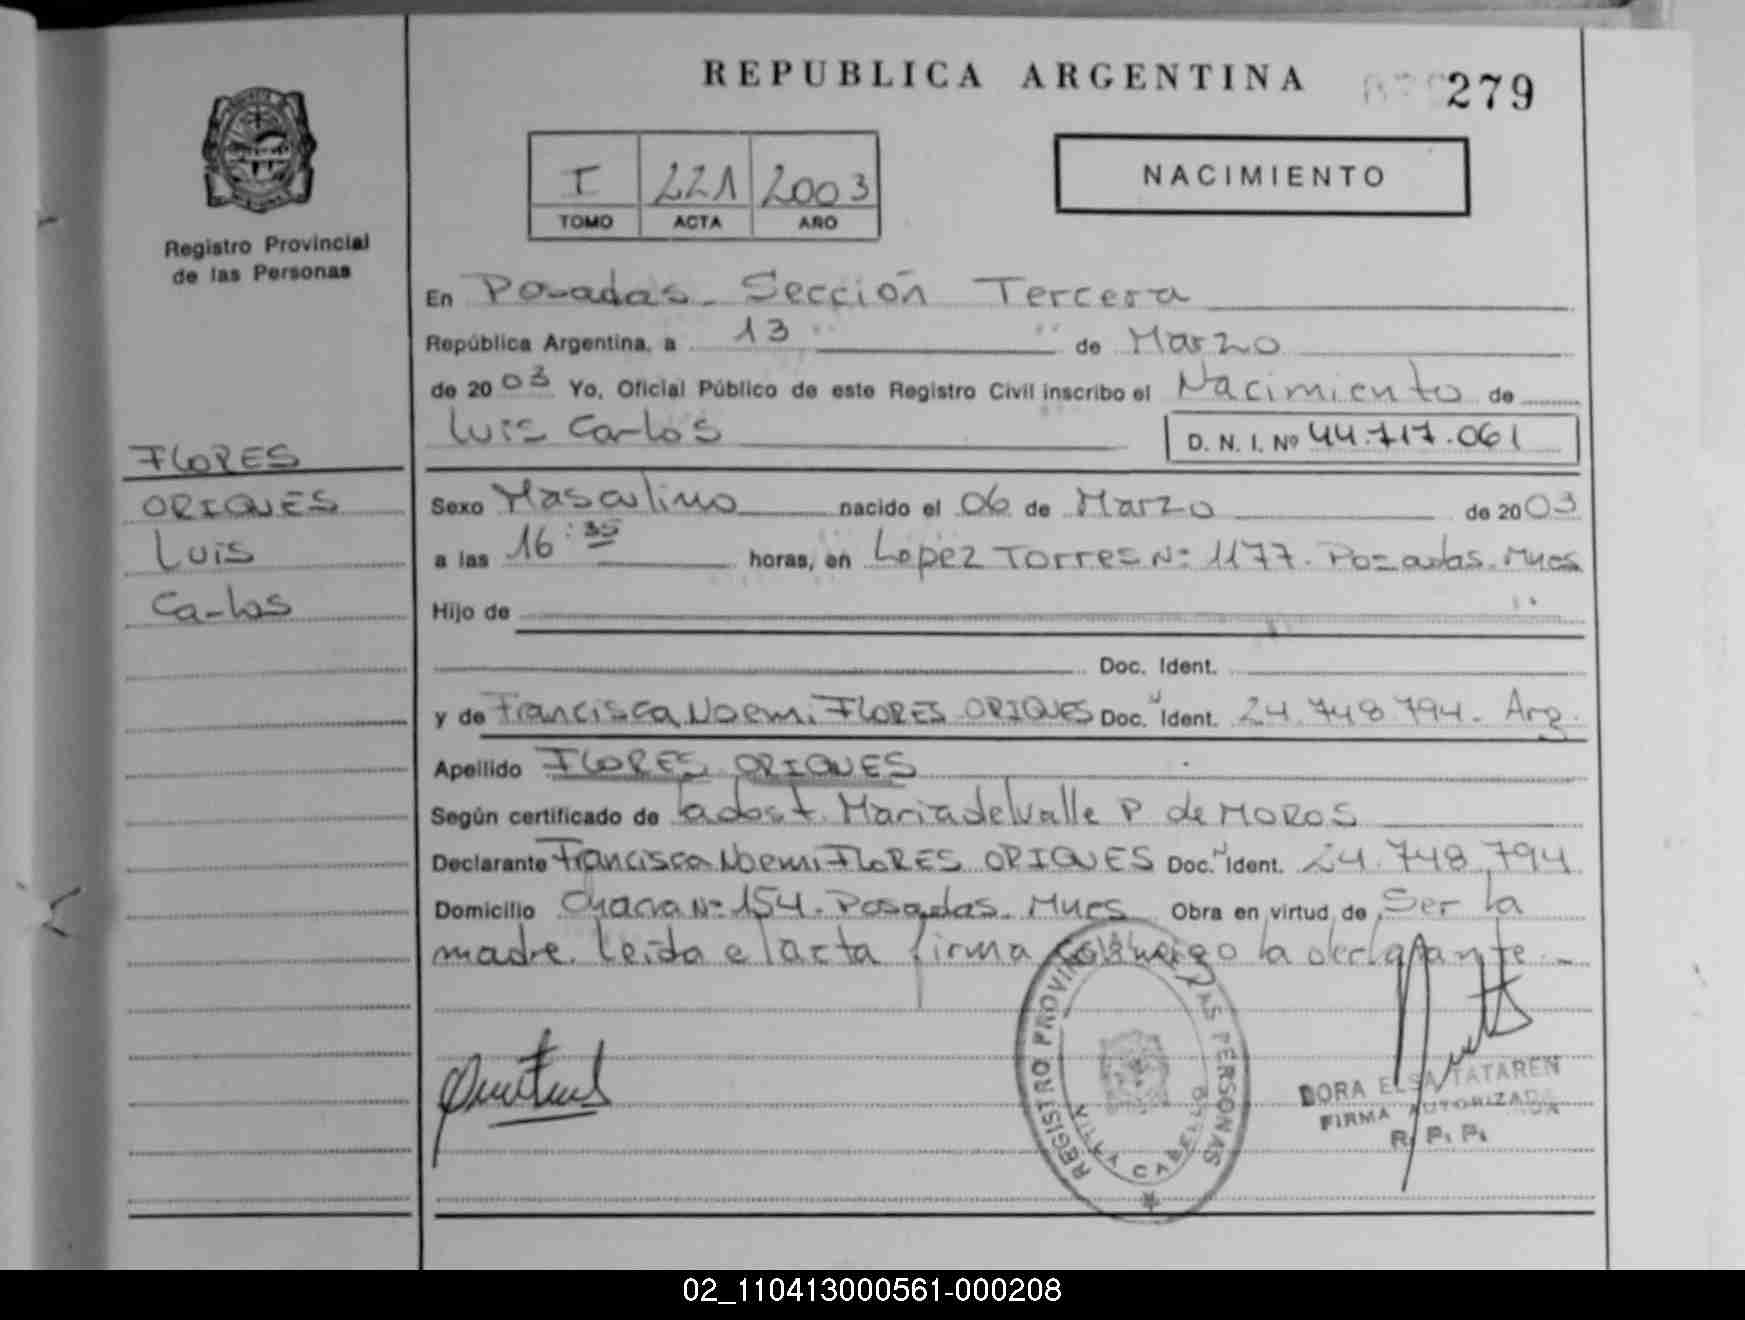 REPUBLICA ARGENTINA
279
I 221 2003
TOMO ACTA AÑO
NACIMIENTO
Registro Provincial
de las Personas
En Posadas - Sección Tercera
República Argentina, a 13 de Marzo
de 20 03 Yo, Oficial Público de este Registro Civil inscribo el Nacimiento de
Luis Carlos
D. N. I. Nº 44.717.061
FLORES
ORIQUES
Luis
Carlos
Sexo Masculino nacido el 06 de Marzo de 20 03
a las 16:35 horas, en Lopez Torres Nº 1177. Posadas. Mnes
Hijo de
Doc. Ident.
y de Francisca Noemi FLORES ORIQUES Doc. Ident. 24.748.794. Arg.
Apellido FLORES ORIQUES
Según certificado de la obst. Maria del valle P de MOROS
Declarante Francisca Noemi FLORES ORIQUES Doc. Ident. 24.748.794
Domicilio Chacra Nº 154. Posadas. Mnes Obra en virtud de Ser la
madre. leida el acta firma conmigo la declarante.-
REGISTRO PROVINCIAL DE LAS PERSONAS
VILLA CABELLO
DORA ELSA TATAREN
FIRMA AUTORIZADA
R. P. P.
02_110413000561-000208